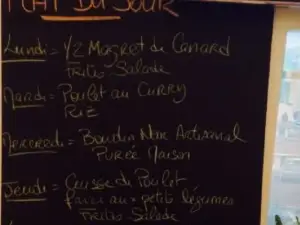 PLAT DU JOUR
Lundi = 1/2 Magret de Canard
Frites-Salade
Mardi = Poulet au Curry
Riz
Mercredi = Boudin Noir Artisanal
Purée Maison
Jeudi = Cuisse de Poulet
farci aux petits légumes
Frites-Salade